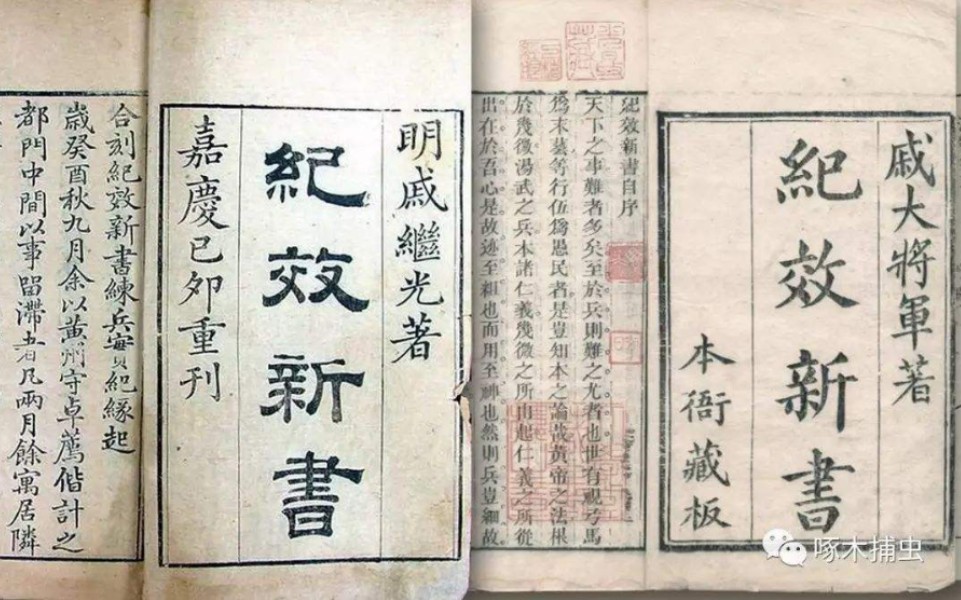 戚大將軍著
紀效新書
本衙藏板
紀效新書自序
天下之事難者多矣至於兵則難之尤者也世有視弓馬
爲末藝等行伍爲愚民者是豈知本之論哉黃帝之法根
於幾微湯武之兵本諸仁義幾微之所由起仁義之所從
出在於吾心是故迹至粗也而用至神也然則兵豈細故
明戚繼光著
紀效新書
嘉慶己卯重刊
合刻紀效新書練兵實紀緣起
歲癸酉秋九月余以黃州守卓薦偕計之
都門中間以事留滯者凡兩月餘寓居隣
啄木捕虫